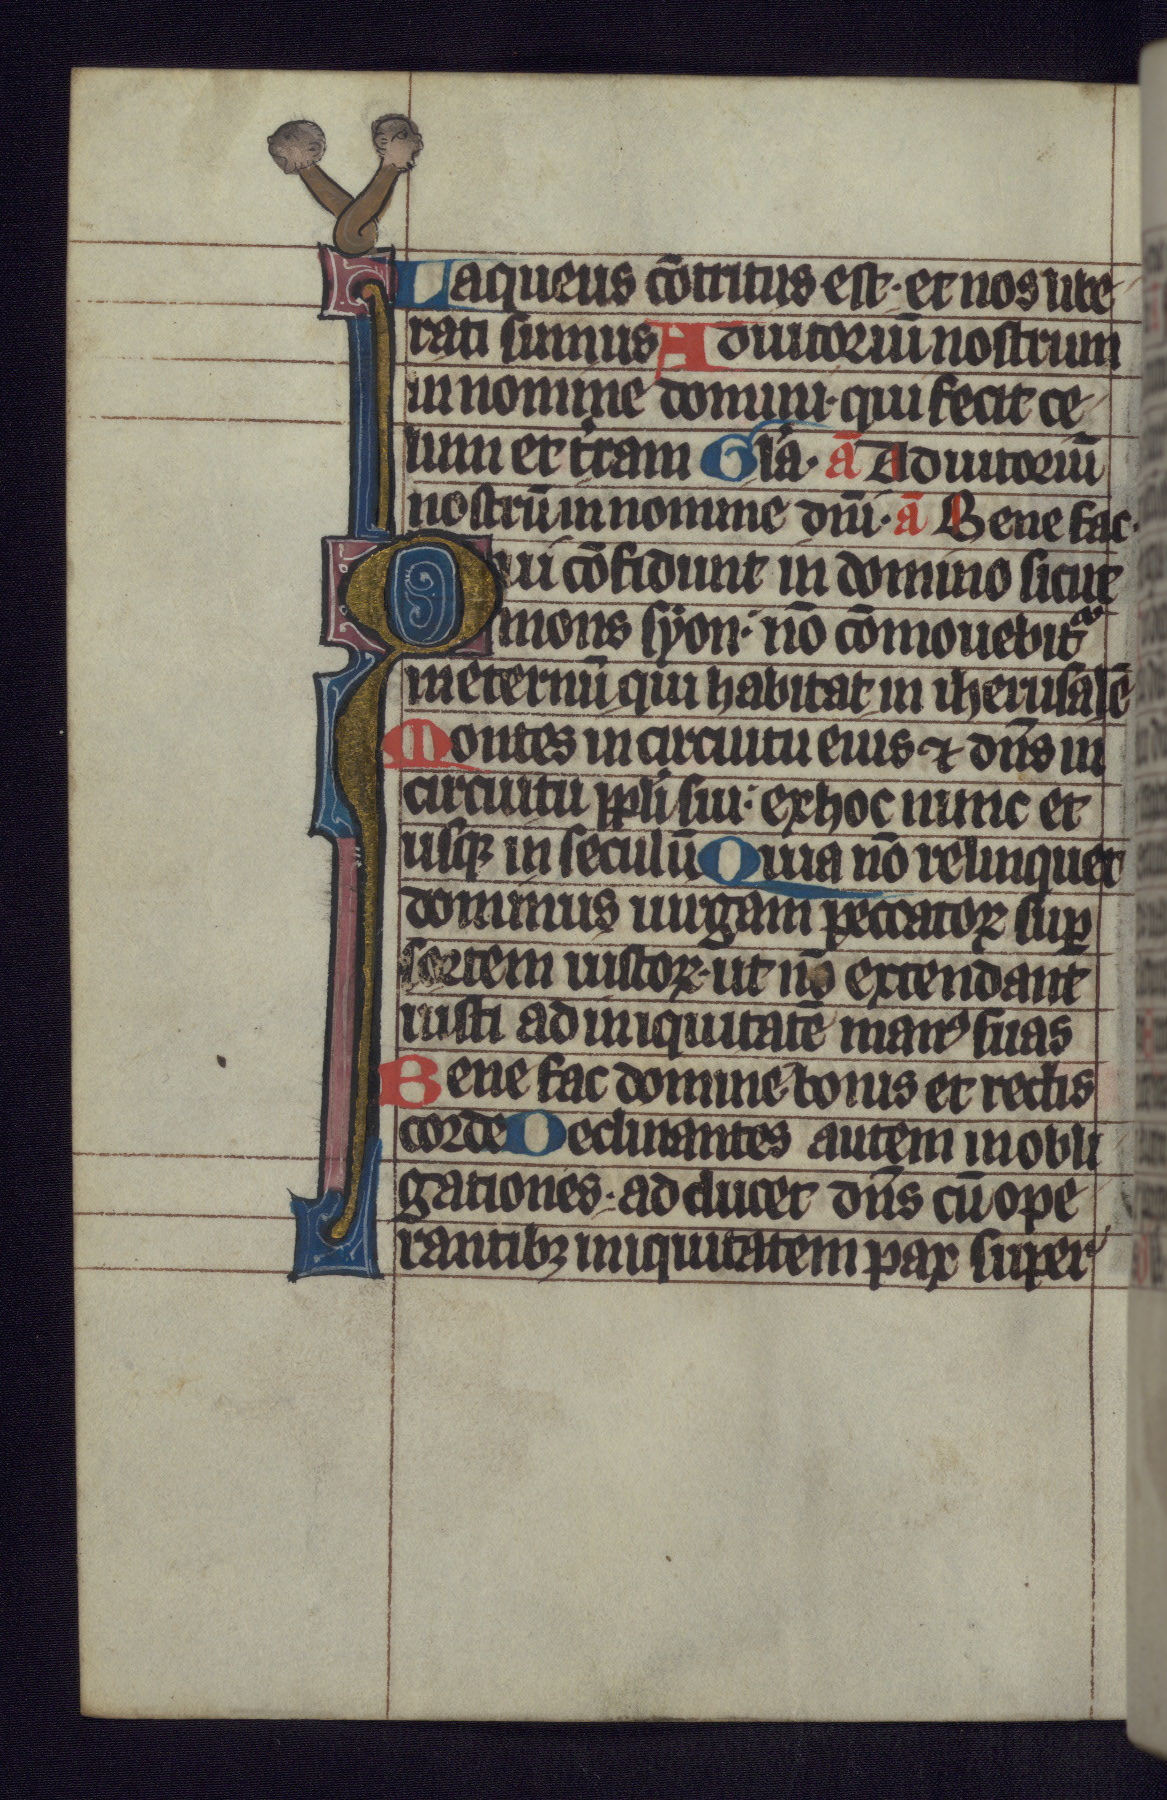 Laqueus cōtritus est· et nos libe
rati sumus Adiutoriū nostrum
in nomine domini· qui fecit ce
lum et t̄ram Gl̄a· ā Adiutoriū
nostrū in nomine dn̄i· ā Bene fac·
Qui cōfidunt in domino sicut
mons syon· nō cōmouebitᷓ
in eternū qui habitat in iherusalē
Montes in circuitu eius ⁊ dn̄s in
circuitu ppl̄i sui· ex hoc nunc et
usqꝫ in seculū Quia nō relinquet
dominus uirgam peccatoꝝ suꝑ
sortem iustoꝝ· ut nō extendant
iusti ad iniquitatē manꝰ suas
Bene fac domine bonis et rectis
corde Declinantes autem in obli
gationes· adducet dn̄s cū ope
rantibꝫ iniquitatem pax super